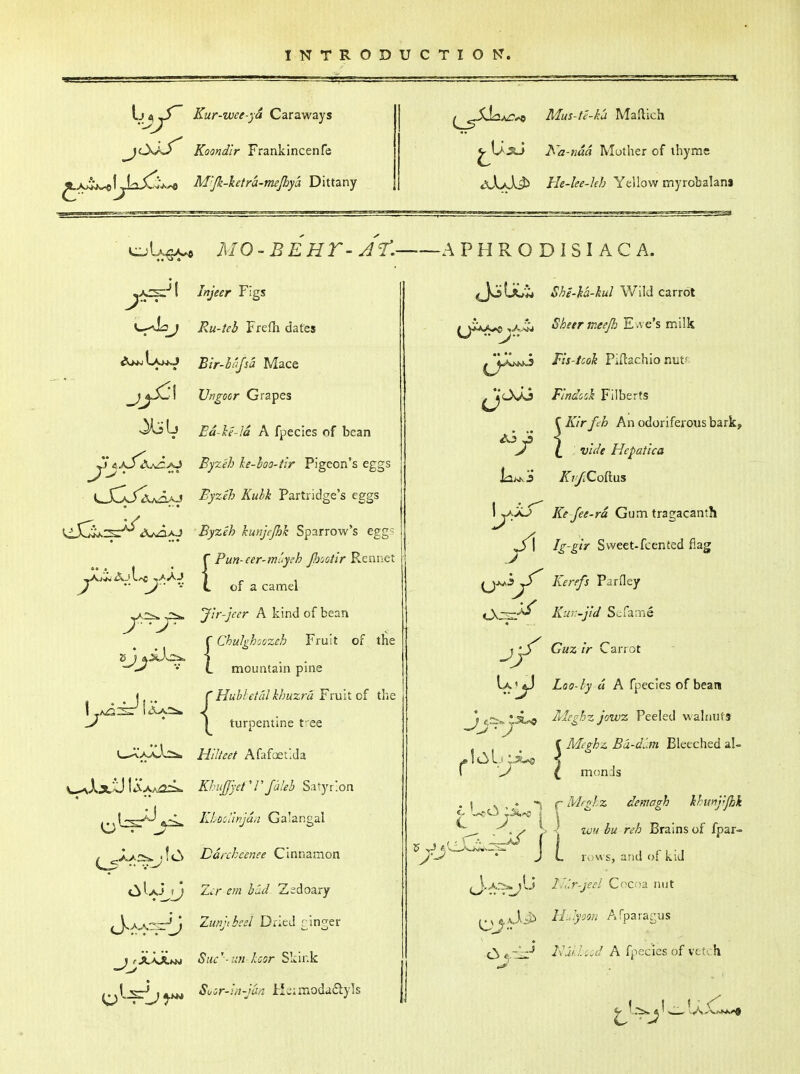 INTRODUCTION.
كرويا Kur-wee-yá Caraways
كندر Koondir Frankincense
مشكطرامشيع Misk-ketrá-meshyá Dittany
مصطكي Mus-té-ká Mastich
نعناع Na-náá Mother of thyme
هليله He-lee-leh Yellow myrobalans
مبهيات MO-BEHY-AT.——APHRODISIACA.
انجير Injeer Figs
رطب Ru-teb Fresh dates
بسباسه Bir-básá Mace
انگور Ungoor Grapes
باقلا Bá-ké-lá A species of bean
بيضه كبوتر Byzéh ke-boo-tir Pigeon's eggs
بيضه كبك Byzéh Kubk Partridge's eggs
بيضه كنجشك Byzéh kunjeshk Sparrow's eggs
پنير مايه شتر Pun-eer-máyeh shootir Rennet
of a camel
جرجير Jir-jeer A kind of bean
چلغوزه Chulghoozeh Fruit of the
mountain pine
Hubbetál khuzrá Fruit of the
turpentine tree
حلتيت Hilteet Asafœtida
خصية الثعلب Khussyet'l'sáleb Satyrion
خولنجان Khoolinján Galangal
دارچيني Dárcheenee Cinnamon
زرنباد Zer em bád Zedoary
زنجبيل Zunjebeel Dried ginger
سقنقور Suc'-un-koor Skink
سورنجان Soor-in-ján Hermodactyls
شقاقل She-ká-kul Wild carrot
شير ميش Sheer meesh Ewe's milk
فستق Fis-took Pistachio nuts
فندق Findook Filberts
قرفه Kir feh An odoriferous bark,
vide Hepatica
قسط Kist Costus
كثيرا Ke-see-rá Gum tragacanth
اگر Ig-gir Sweet-scented flag
كرفس Kerefs Parsley
كنجد Kun-jid Sesamé
گزر Guz ir Carrot
لوبيا Loo-by á A species of bean
مغز جوز Meghz jowz Peeled walnuts
مغز بادام Meghz Bá-dám Bleeched al-
monds
Meghz demagh khunjishk
wu bu reh Brains of spar-
rows, and of kid
نارجيل Nár-jeel Cocoa nut
هليون Hulyoon Asparagus
نخود Núkhood A species of vetch